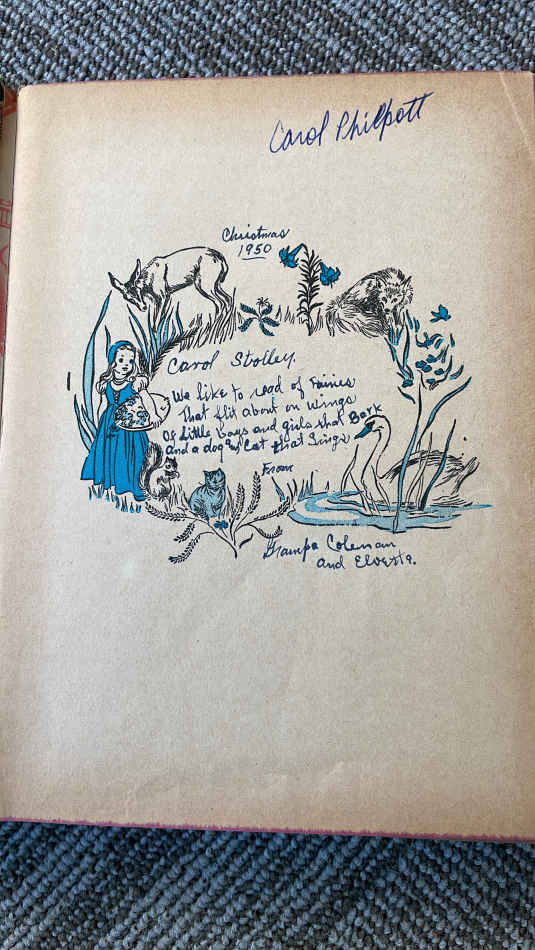 Carol Philpott
Christmas
1950
Carol Stolley.
We like to read of Fairies
That flit about on wings
Of Little boys and girls that Bark
and a dog Cat that Sings
From
Grampa Coleman
and